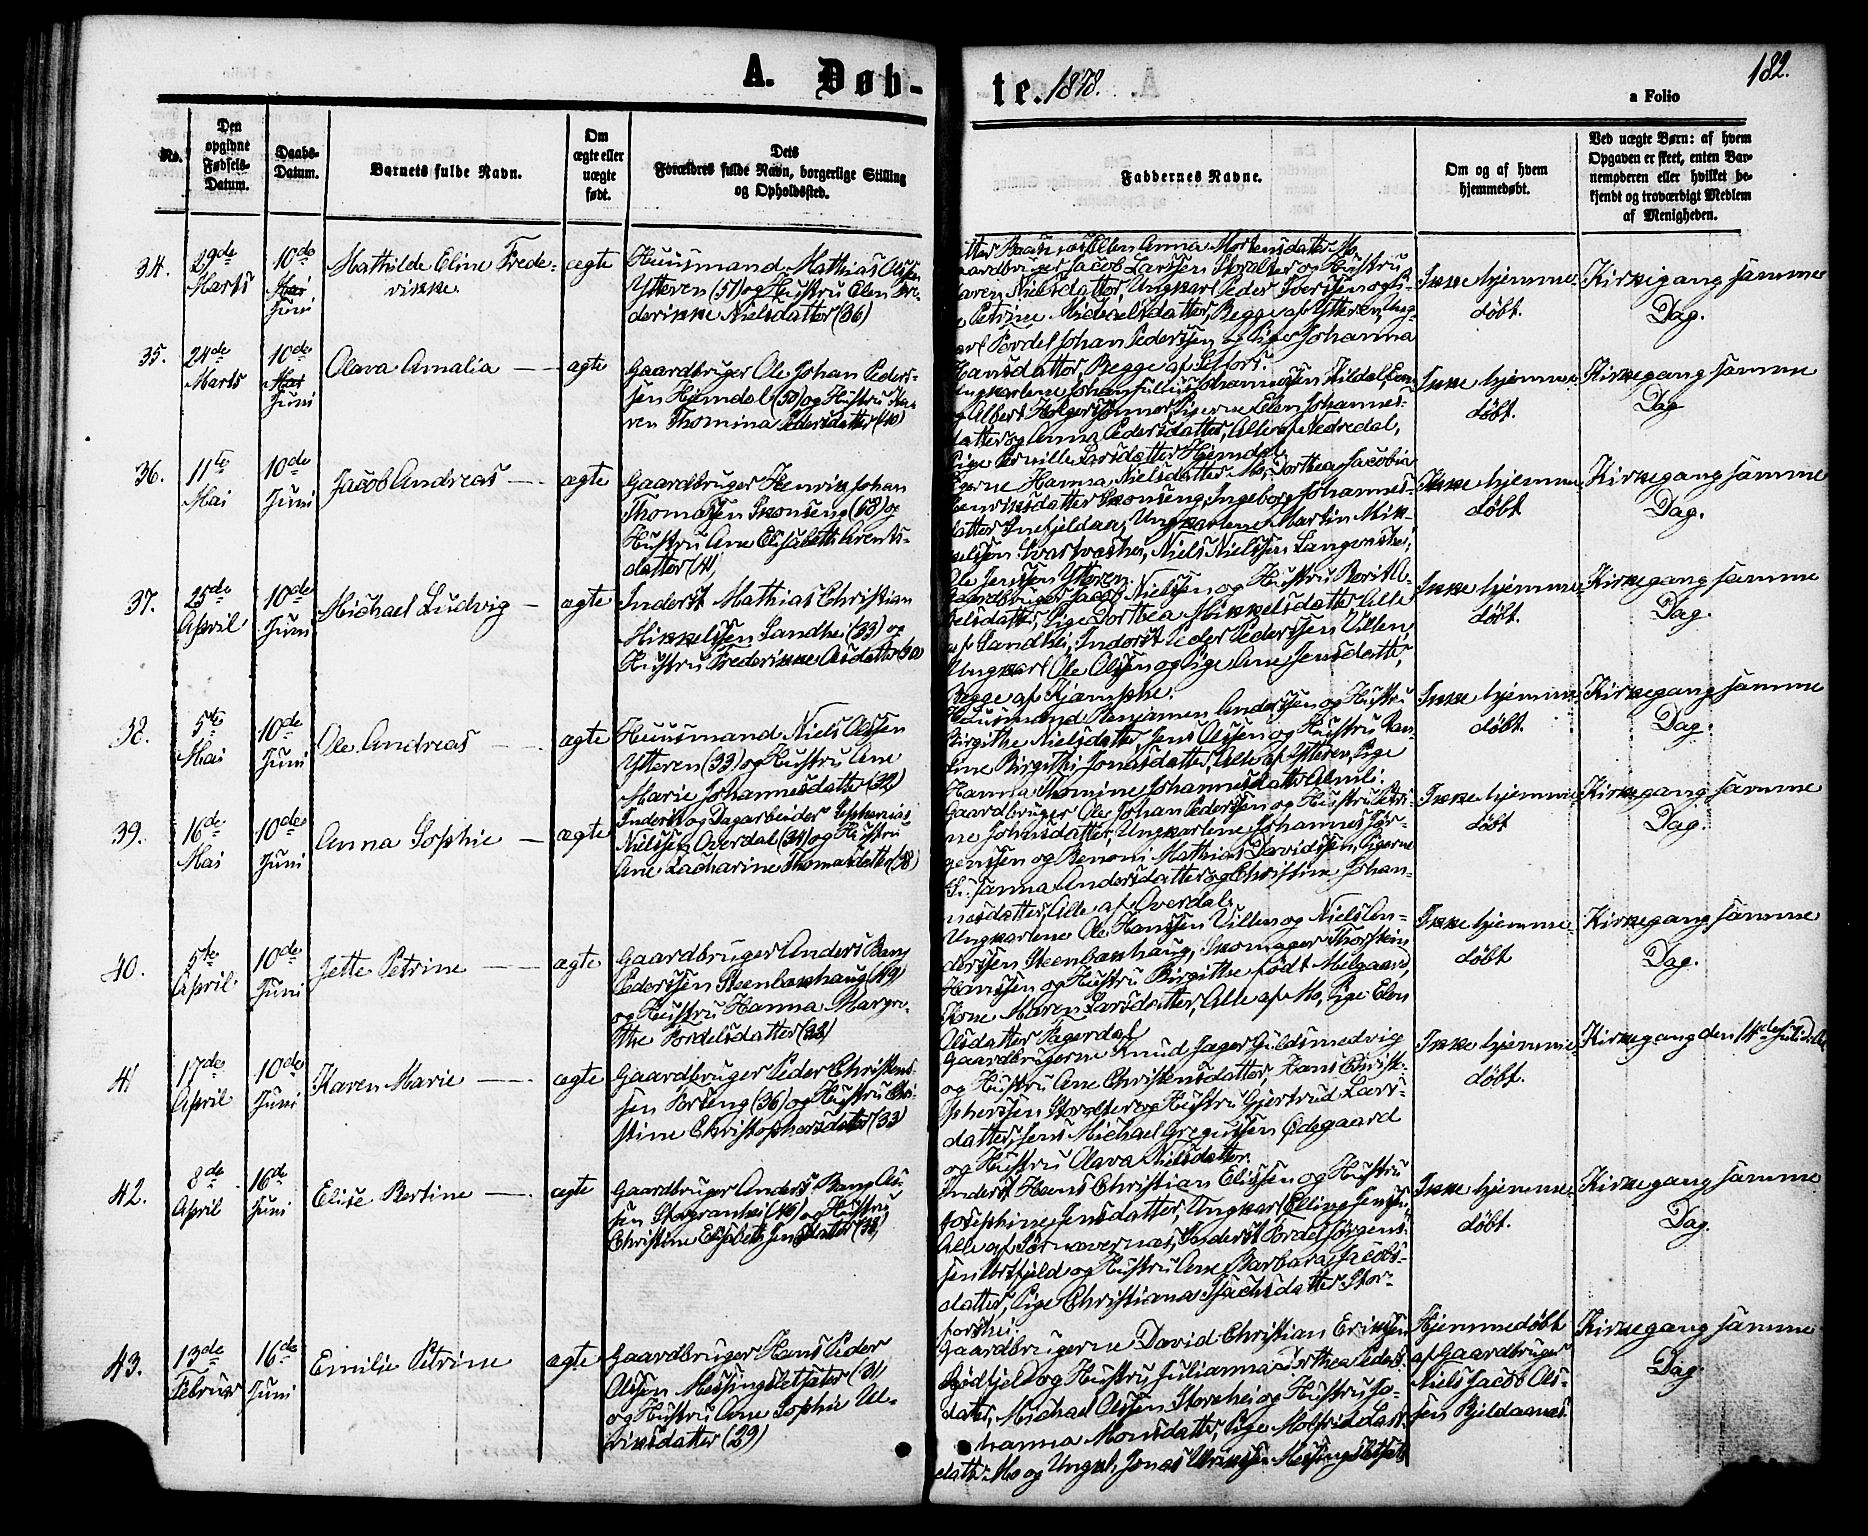 A. Døb-
te. 1878.
182.
a Folio
No.
Den
opgivne
Fødsels-
Datum.
Daabs-
Datum.
Barnets fulde Navn.
Om
ægte eller
uægte
født.
Dets
Forældres fulde Navn, borgerlige Stilling
og Opholdssted.
Faddernes Navne.
Om og af hvem
hjemmedøbt.
Ved uægte Børn: af hvem
Opgaven er skeet, enten Bar-
nemoderen eller hvilket be-
kjendt og troværdigt Medlem
af Menigheden.
34.
29de
Marts
10de
Mai
Juni
Mathilde Eline Frede-
rikke
ægte
Huusmand Mathias Olsen
Ytteren (51) og Hustru Elen Fre-
derikke Nielsdatter (36)
Ellen Anna Mortensdatter Mo
Jacob Larssen Storalter og Hustru
Maren Nielsdatter, Ungkarl Peder Iversen og Pi-
ge Petrine Michaelsdatter, Begge af Ytteren, Ung-
karl Pordel Johan Pederssen og Pige Johanna
Hansdatter, Begge af Selfors.
Ikke hjemme-
døbt.
Kirkegang samme
Dag.
35.
24de
Marts
10de
Mai
Juni
Olava Amalia
ægte
Gaardbruger Ole Johan Peders-
sen Hjemdal (50) og Hustru Ka-
ren Thomina Pedersdatter (40)
Ungkarlene Johan Julius Johannessen Kildal,
Albert Holgersen Pigerne Elen Johannes-
datter og Anna Pedersdatter, Alle af Nedredal,
Pige Pernille Larsdatter Hjemdal
Ikke hjemme-
døbt.
Kirkegang samme
Dag
36.
11te
Mai
10de
Juni
Jacob Andreas
ægte
Gaardbruger Henrik Johan
Thomassen Skonseng (58) og
Hustru Ane Elisabeth Arents-
datter (41)
Pigerne Hanna Nielsdatter Mo, Dorthea Jacobia
Henriksdatter Skonseng, Ingeborg Johannes-
datter Snefjeldaa, Ungkarlene Martin Mik-
kelssen Svartvashei, Niels Nielssen Langvashei,
Ole Jenssen Ytteren.
Ikke hjemme-
døbt
Kirkegang samme
Dag.
37.
25de
April
10de
Juni
Michael Ludvig
ægte
Inderst Mathias Christian
Mikkelssen Sandhei (33) og
Hustru Frederikke Aidatter (30)
Gaardbruger Jacob Nielssen og Hustru Berit A-
Pige Dorthea Mikkelsdatter Alle
af Sandhei, Inderst Peder Pederssen Villen,
Ungkarl Ole Olssen og Pige Ane Jensdatter,
Begge af Kjamphe.
Ikke hjemme-
døbt.
Kirkegang samme
Dag.
38.
5te
Mai
10de
Juni
Ole Andreas
ægte
Huusmand Niels Olssen
Ytteren (33) og Hustru Ane
Marie Johannesdatter (32)
Huusmand Benjamin Anderssen og Hustru
Birgithe Nielsdatter, Jens Olssen og Hustru Kar-
Birgithe Jonasdatter, Alle af Ytteren, Pige
Hanna Thomine Johannesdatter Almli.
Ikke hjemme-
døbt.
Kirkegang samme
Dag.
39.
16de
Mai
10de
Juni
Anna Sophie
ægte
Inderst og Dagarbeider Zephanias
Nielssen Overdal (34) og Hustru
Ane Zacharine Thomasdatter (38)
Gaardbruger Ole Johan Pederssen og Hustru Petri-
ne Johnsdatter, Ungkarlene Johannes Jør-
genssen og Benoni Mathias Davidssen, Pigerne
Susanna Andersdatter og Christine Johan-
nesdatter, Alle af Overdal.
Ikke hjemme-
døbt
Kirkegang samme
Dag.
40.
5te
April
10de
Juni
Jette Petrine
ægte
Gaardbruger Anders Bang
Pederssen Steenbækhaug (49)
og Hustru Hanna Margre-
the Pordelsdatter (38)
Ungkarlene Ole Hanssen Villen og Niels An-
derssen Steenbækhaug, Skomager Thorstein
Hanssen og Hustru Birgithe født Melgaard,
Kone Maren Larsdatter, Alle af Mo, Pige Elen
Olsdatter Fagerdal
Ikke hjemme-
døbt
Kirkegang samme
Dag.
41
17de
April
10de
Juni
Karen Marie
ægte
Gaardbruger Peder Christens-
sen Forseng (36) og Hustru Chri-
stine Christophersdatter (33)
Gaardbrugerne Knud Jager Guldsmedvig
og Hustru Ane Christensdatter, Hans Christo-
pherssen Storalter og Hustru Gjertrud Lars-
datter, Jens Michael Gregussen Ødegaard
og Hustru Olava Nielsdatter.
Ikke hjemme-
døbt.
Kirkegang den 14de Juli
42.
8de
April
16de
Juni
Elise Bertine
ægte
Gaardbruger Anders Bang Ol-
sen Storgranhei (46) og Hustru
Christine Elisabeth Jensdatter (38)
Inderst Hans Christian Elissen og Hustru
Josephine Jensdatter, Ungkarl Elling Jenssen
Alle af Sørnævernæs, Inderst Pordel Jørgens-
sen Ørtfjeld og Hustru Ane Barbara Jacobs-
datter, Pige Christiana Isachsdatter Stor-
forshei.
Ikke hjemme-
døbt.
Kirkegang samme
Dag.
43.
13de
Februar
16de
Juni
Emilie Petrine
ægte
Gaardbruger Hans Peder
Olssen Messingsletfater (31)
og Hustru Ane Sophie Ul-
riksdatter (29)
Gaardbrugerne David Christian Eriksen
Rødfjeld og Hustru Julianna Dorthea Peders-
datter, Michael Olssen Storehei og Hustru Jo-
hanna Monsdatter, Pige Molfrid Lars-
datter Mo og Ungk. Jonas Ulrikssen Messingsletfater
Hjemmedøbt
af Gaardbruger
Niels Jacob Ols-
sen Bjeldaanæs.
Kirkegang samme
Dag